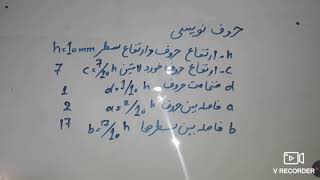 حروف نویسی
h - ارتفاع حروف و ارتفاع سطر h=10mm
c - ارتفاع حروف خورد لاتین c=7/10 h 7
d ضخامت حروف d=1/10 h 1
a فاصله بین حروف a=2/10 h 2
b فاصله بین سطرها b=17/10 h 17
V RECORDER